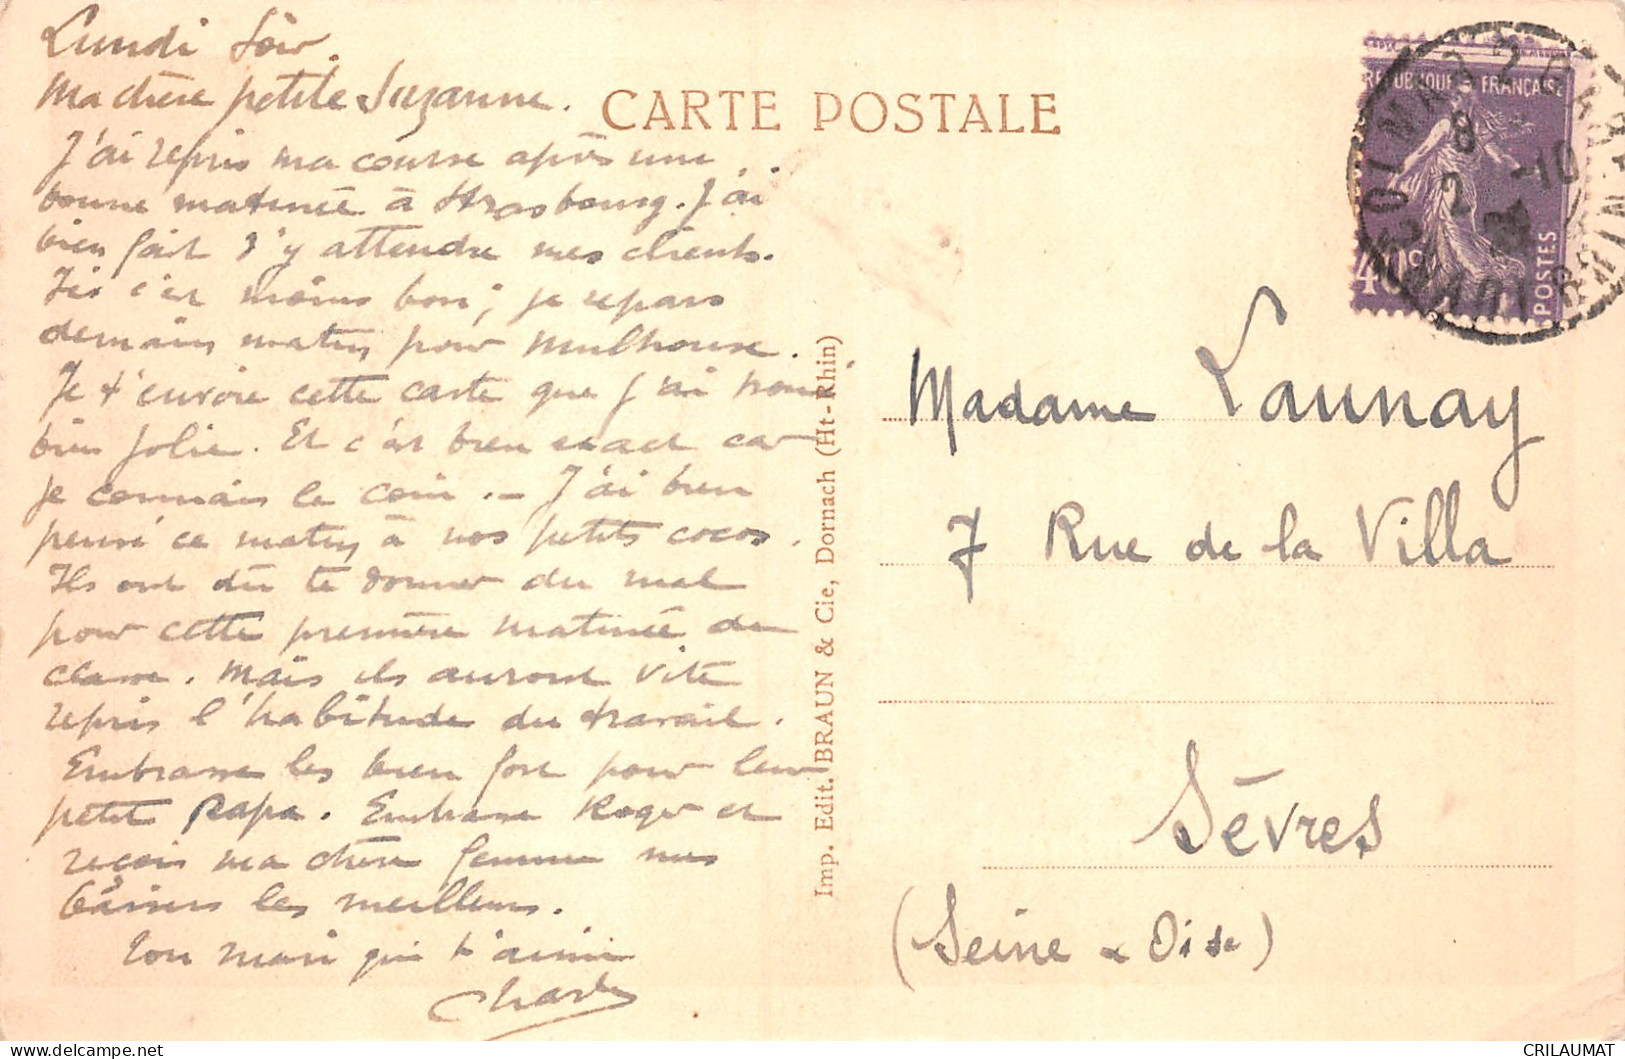 Lundi Soir.
Ma chère petite Suzanne.
J'ai repris ma course après une
bonne matinée à Strasbourg. J'ai
bien fait d'y attendre mes clients.
Ici c'est moins bon ; je repars
demain matin pour Mulhouse.
Je t'envoie cette carte que j'ai trouvé
bien jolie. Et c'est bien exact car
je connais le coin. — J'ai bien
pensé ce matin à nos petits cocos.
Ils ont dû te donner du mal
pour cette première matinée de
classe. Mais ils auront vite
repris l'habitude du travail.
Embrasse les bien fort pour leur
petit Papa. Embrasse Roger et
reçois ma chère femme mes
baisers les meilleurs.
Ton mari qui t'aime
Charles
CARTE POSTALE
Imp. Edit. BRAUN & Cie, Dornach (Ht-Rhin)
REPUBLIQUE FRANÇAISE
40c
POSTES
COLMAR
RHIN
Madame Launay
7 Rue de la Villa
Sèvres
(Seine & Oise)
CRILAUMAT